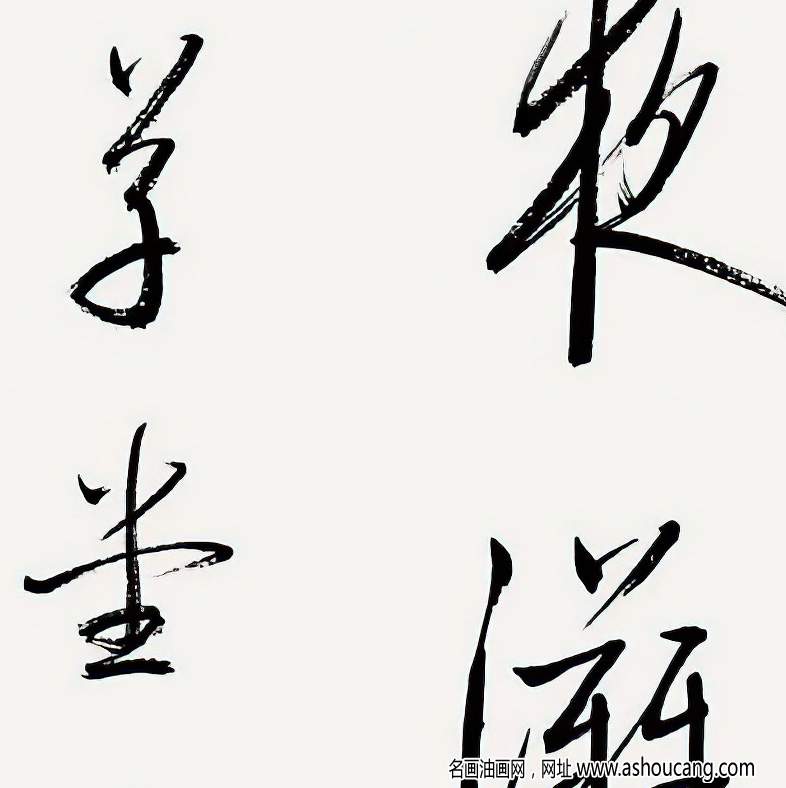 滋
草堂
名画油画网，网址 www.ashoucang.com